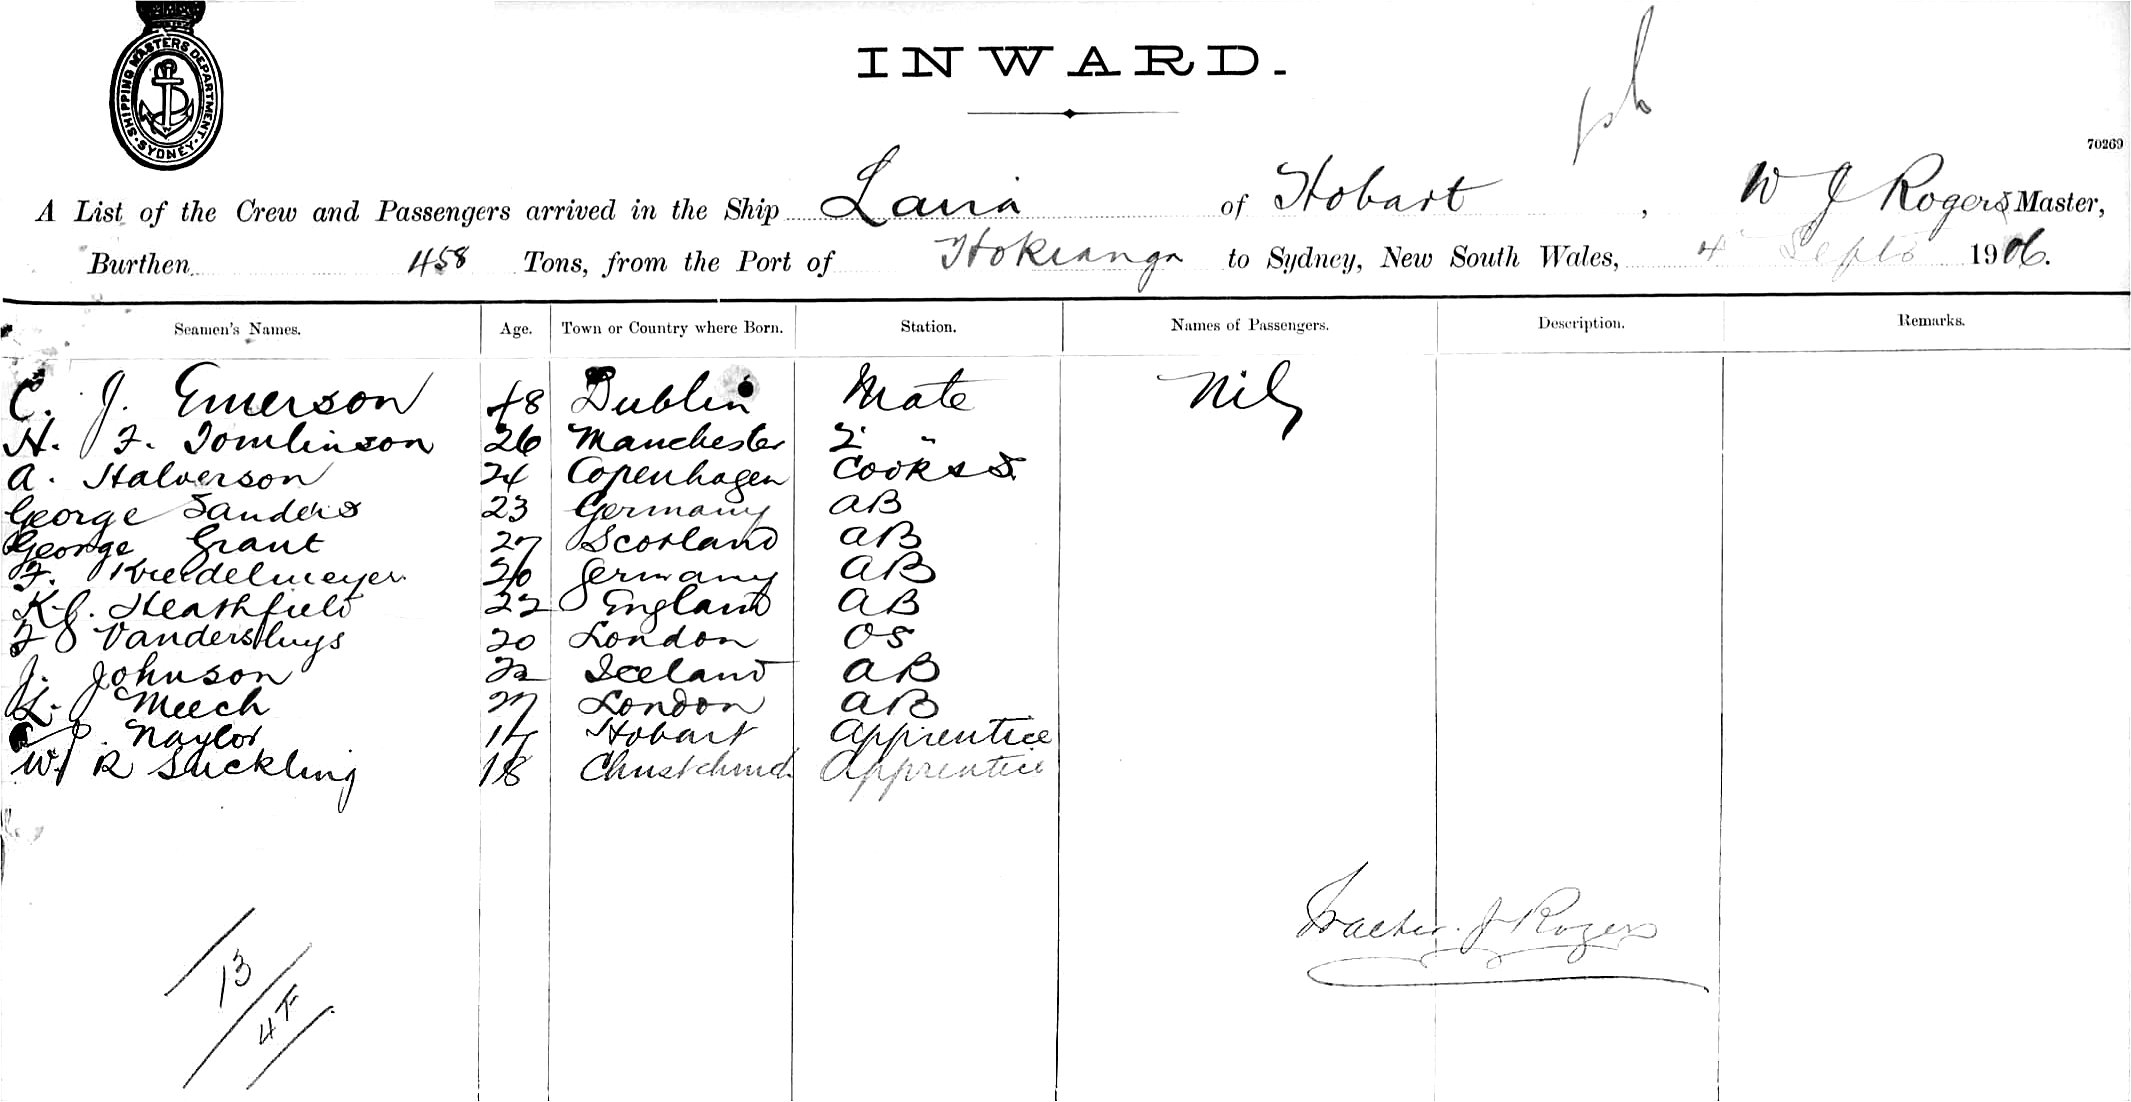 SHIPPING MASTERS DEPARTMENT · SYDNEY ·
INWARD.
70269
A List of the Crew and Passengers arrived in the Ship Laira of Hobart, W J Rogers Master,
Burthen 458 Tons, from the Port of Hokianga to Sydney, New South Wales, 4th Septr 1906.
Seamen's Names. Age. Town or Country where Born. Station. Names of Passengers. Description. Remarks.
C. J. Emerson 48 Dublin Mate Nil
H. F. Tomlinson 26 Manchester 2 "
A. Halverson 24 Copenhagen Cook & S.
George Sanders 23 Germany AB
George Grant 27 Scotland AB
F. Kreidelmeyer 20 Germany AB
Heathfield 22 England AB
Vandersluys 20 London OS
J. Johnson 22 Iceland AB
Meech 27 London AB
Naylor 17 Hobart Apprentice
W. R Suckling 18 Christchurch Apprentice
Walter. J Rogers
13
4 F